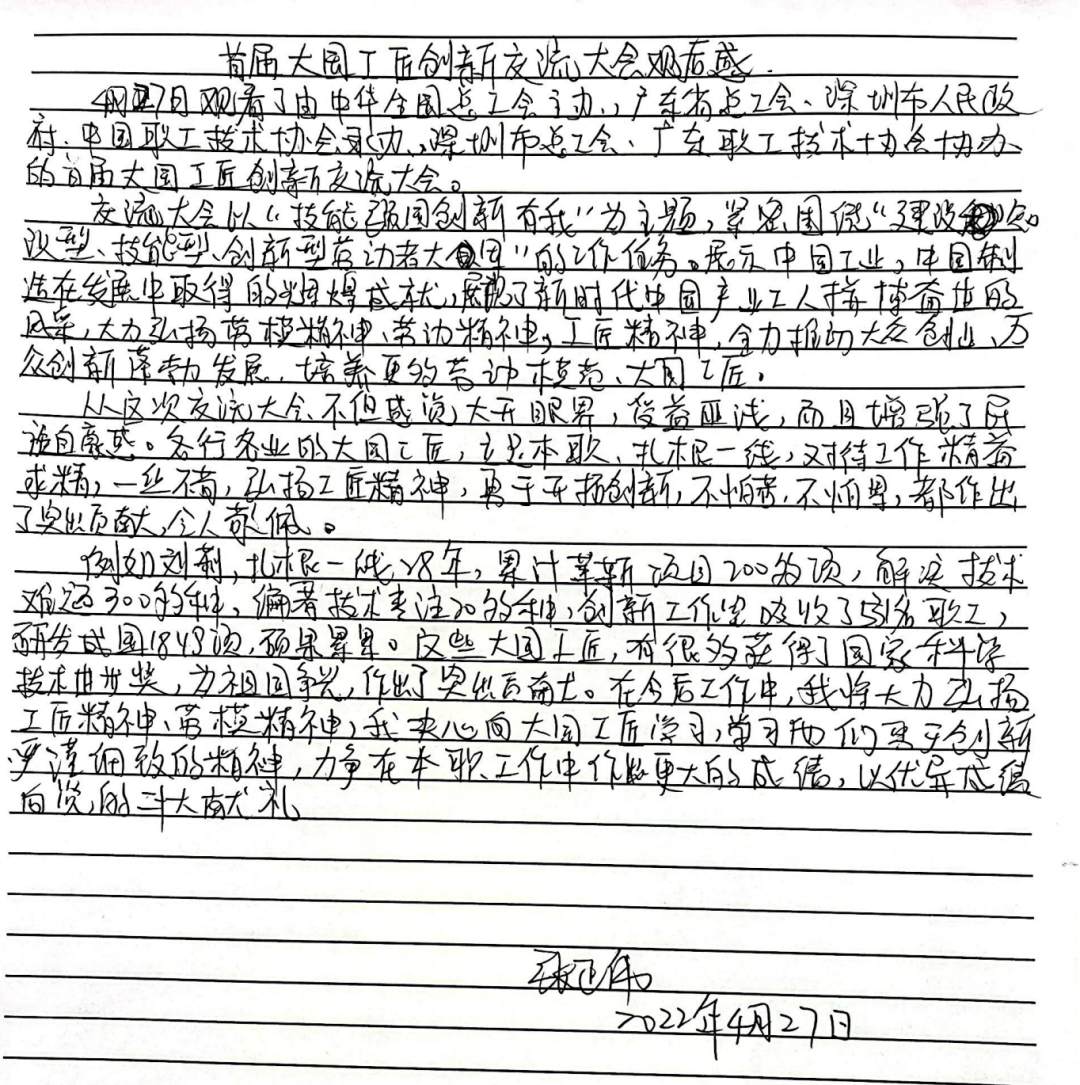 首届大国工匠创新交流大会观后感.
4月27日观看了由中华全国总工会主办,广东省总工会、深圳市人民政
府、中国职工技术协会承办,深圳市总工会、广东职工技术协会协办
的首届大国工匠创新交流大会。
交流大会以“技能强国创新有我”为主题,紧密围绕“建设知
识型、技能型、创新型劳动者大军”的工作任务。展示中国工业,中国制
造在发展中取得的辉煌成就,展现了新时代中国产业工人拼搏奋进的
风采,大力弘扬劳模精神、劳动精神,工匠精神,全力推动大众创业、万
众创新蓬勃发展,培养更多劳动模范、大国工匠。
从这次交流大会、不但感觉大开眼界,受益匪浅,而且增强了民
族自豪感。各行各业的大国工匠,立足本职、扎根一线,对待工作精益
求精,一丝不苟,弘扬工匠精神,勇于开拓创新,不怕苦,不怕累,都作出
了突出贡献,令人敬佩。
例如刘,扎根一线28年,累计革新项目200多项,解决技术
难题300多种,编著技术专注20多种,创新工作室吸收了531名职工,
研发成1843项,硕果累累。这些大国工匠,有很多获得了国家科学
技术进步奖,为祖国争光,作出了突出贡献。在今后工作中,我将大力弘扬
工匠精神、劳模精神,我决心向大国工匠学习,学习他们勇于创新
严谨细致的精神,力争在本职工作中作出更大的成绩,以优异成绩
向党的二十大献礼
伟
2022年4月27日